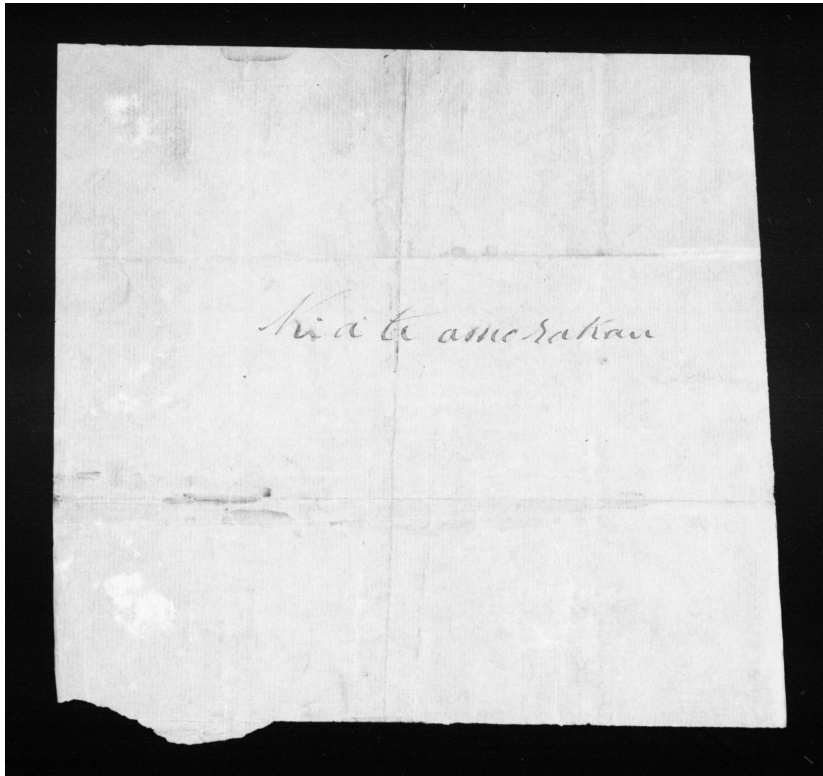 Ki a te amorakau